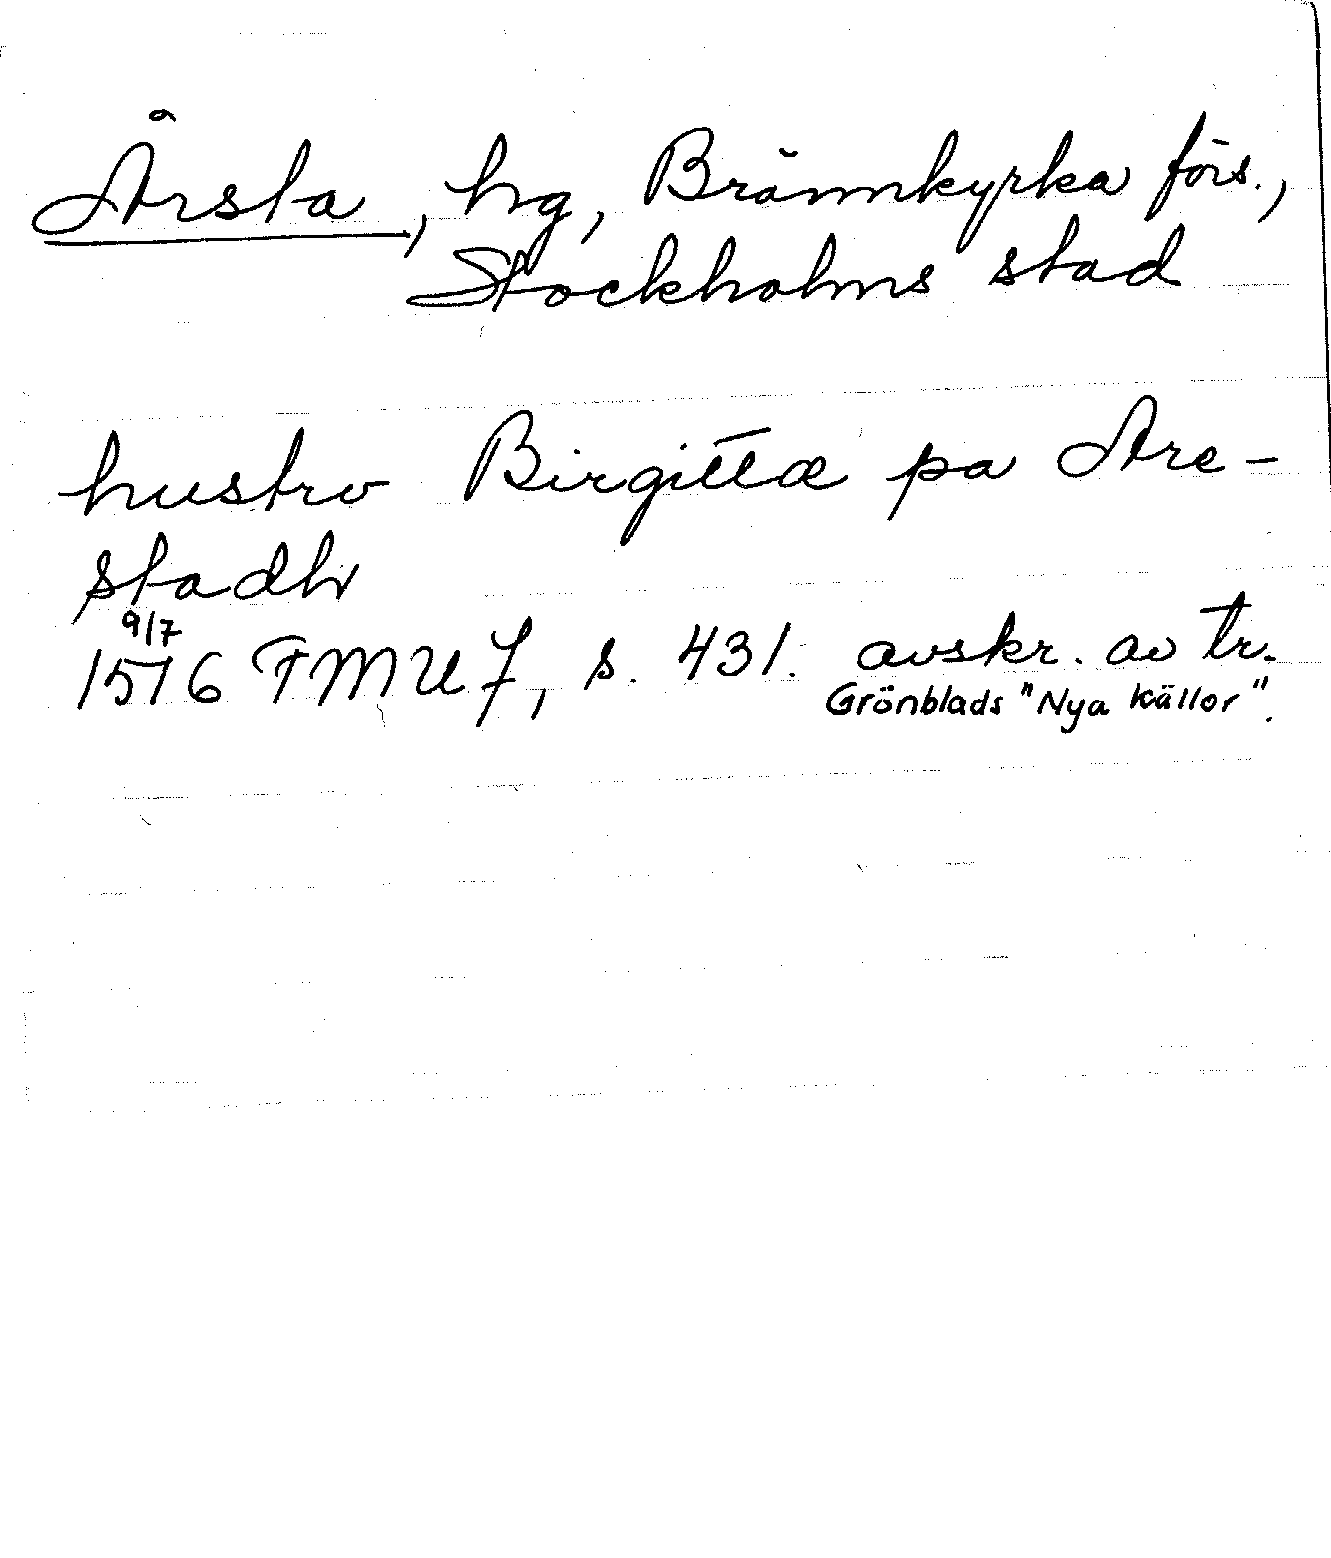 Årsta, hg, Brännkyrka förs.,
Stockholms stad
hustrv Birgittæ pa Are-
stadh
9/7
1516 FMU 7, s. 431. avskr. av tr.
Grönblads "Nya källor".